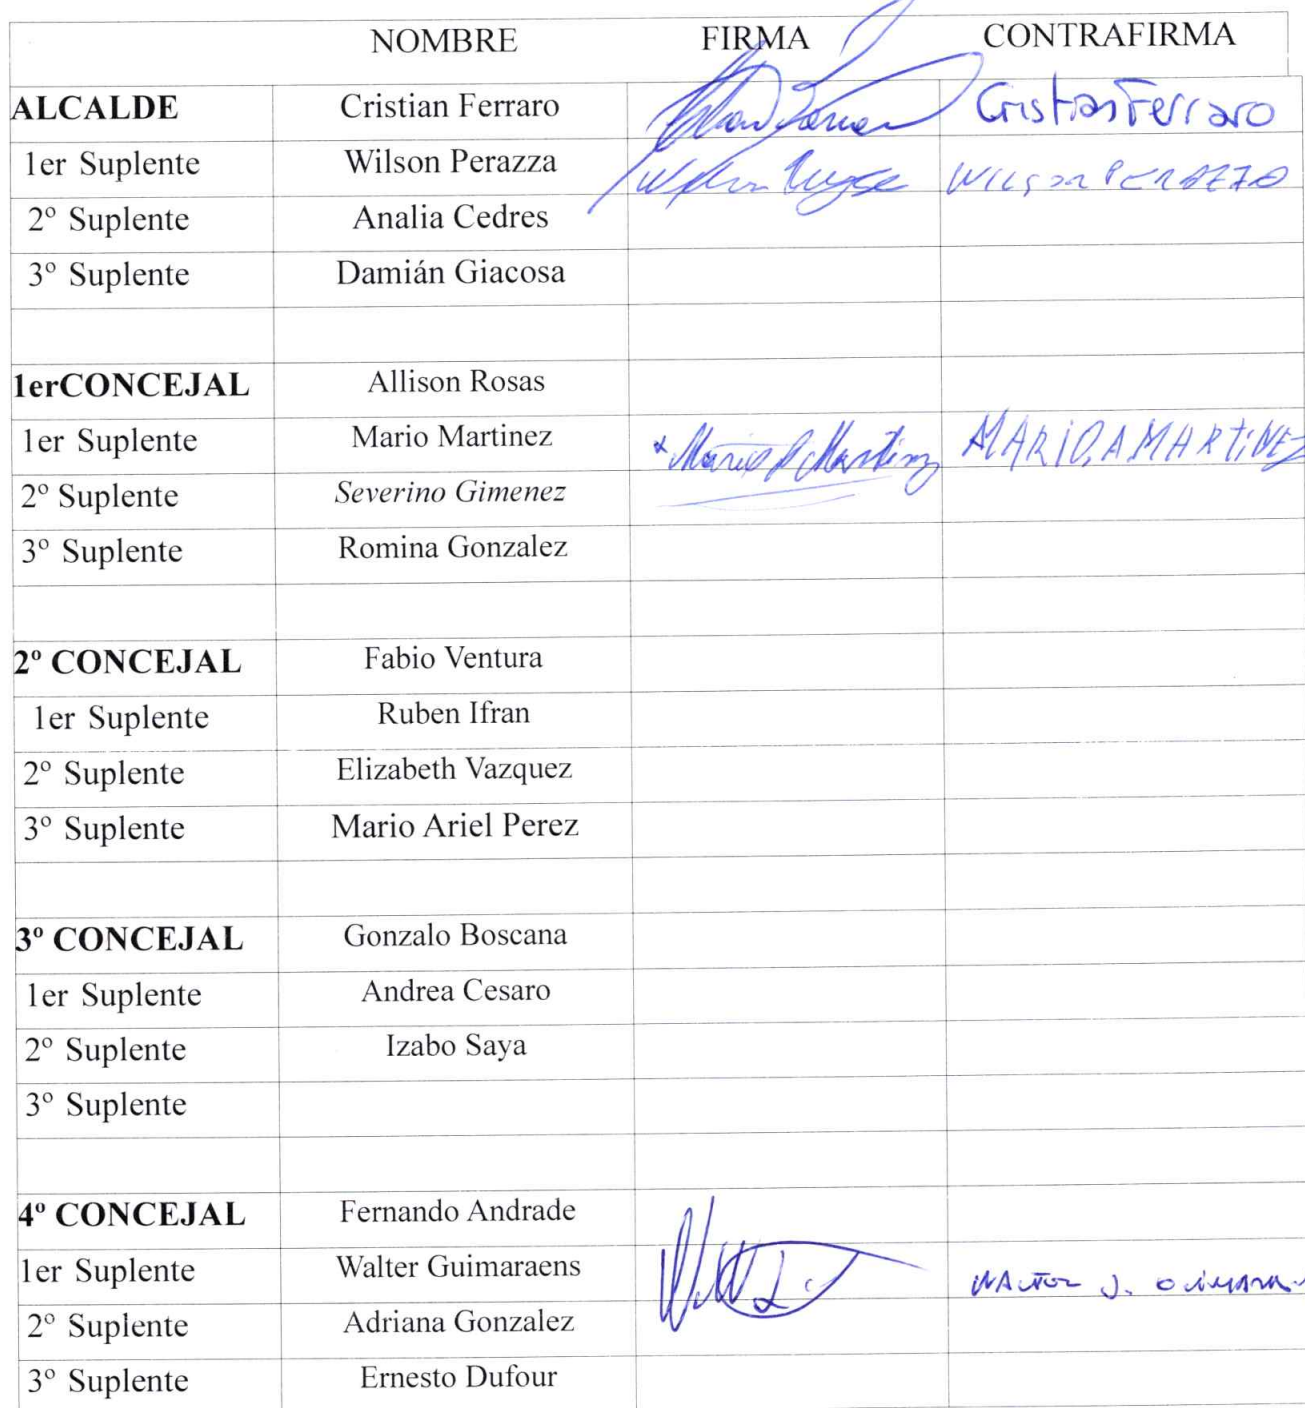 NOMBRE FIRMA CONTRAFIRMA
ALCALDE Cristian Ferraro Cristian Ferraro
1er Suplente Wilson Perazza WILSON PERAZZA
2º Suplente Analia Cedres
3º Suplente Damián Giacosa
1erCONCEJAL Allison Rosas
1er Suplente Mario Martinez x Mario A Martinez MARIO.A MARTINEZ
2º Suplente Severino Gimenez
3º Suplente Romina Gonzalez
2º CONCEJAL Fabio Ventura
1er Suplente Ruben Ifran
2º Suplente Elizabeth Vazquez
3º Suplente Mario Ariel Perez
3º CONCEJAL Gonzalo Boscana
1er Suplente Andrea Cesaro
2º Suplente Izabo Saya
3º Suplente
4º CONCEJAL Fernando Andrade
1er Suplente Walter Guimaraens WALTER J.
2º Suplente Adriana Gonzalez
3º Suplente Ernesto Dufour